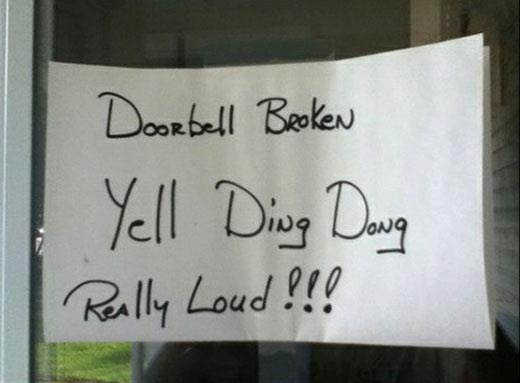 Doorbell Broken
Yell Ding Dong
Really Loud !!!